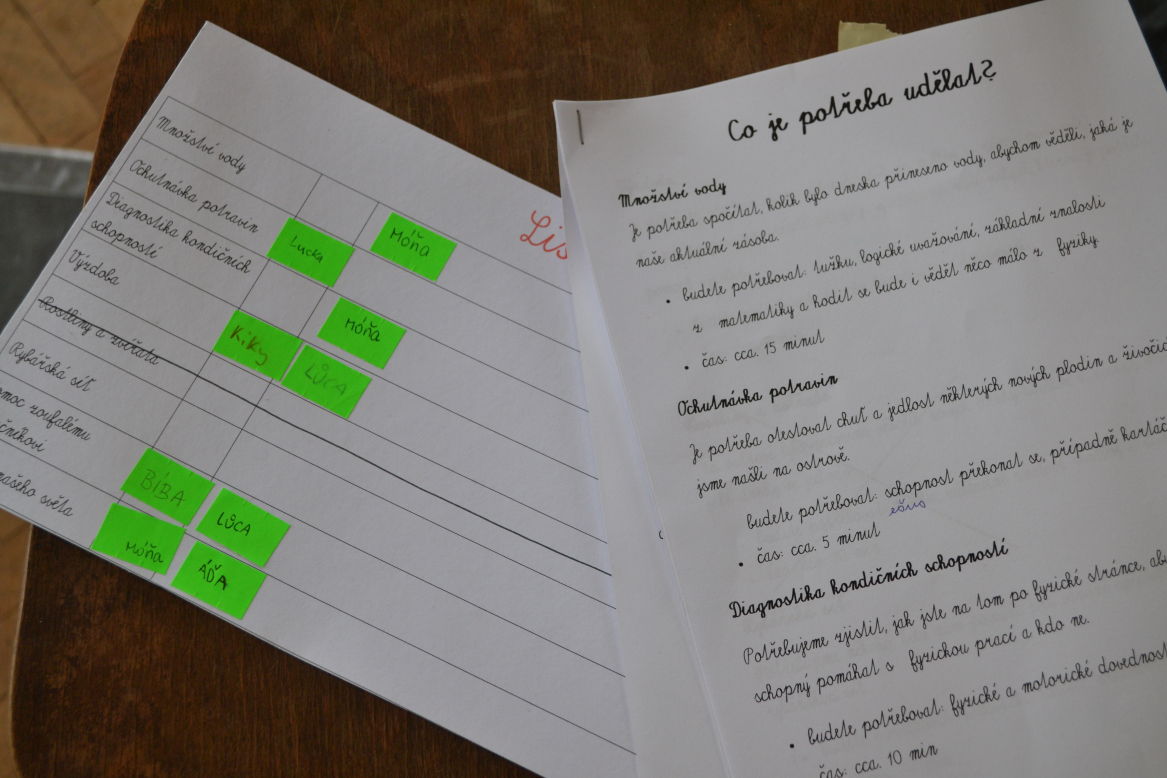 Množství vody
Ochutnávka potravin
Diagnostika kondičních
schopností
Výzdoba
Rostliny a zvířata
Rybářská síť
moc zoufalému
našeho světa
Lucka
MÓŇA
MÓŇA
KIKY
LŮCA
BÍBA
LŮCA
MÓŇA
ÁĎA
Lis
Co je potřeba udělat?
Množství vody
Je potřeba spočítat, kolik bylo dneska přineseno vody, abychom věděli, jaká je
naše aktuální zásoba.
• budete potřebovat: tužku, logické uvažování, základní znalosti
z matematiky a hodit se bude i vědět něco málo z fyziky
• čas: cca. 15 minut
Ochutnávka potravin
Je potřeba otestovat chuť a jedlost některých nových plodin a živočic
jsme našli na ostrově.
budete potřebovat: schopnost překonat se, případně kartáč
• čas: cca. 5 minut
Diagnostika kondičních schopností
Potřebujeme zjistit, jak jste na tom po fyzické stránce, aby
schopný pomáhat s fyzickou prací a kdo ne.
• budete potřebovat: fyzické a motorické dovednost
čas: cca. 10 min